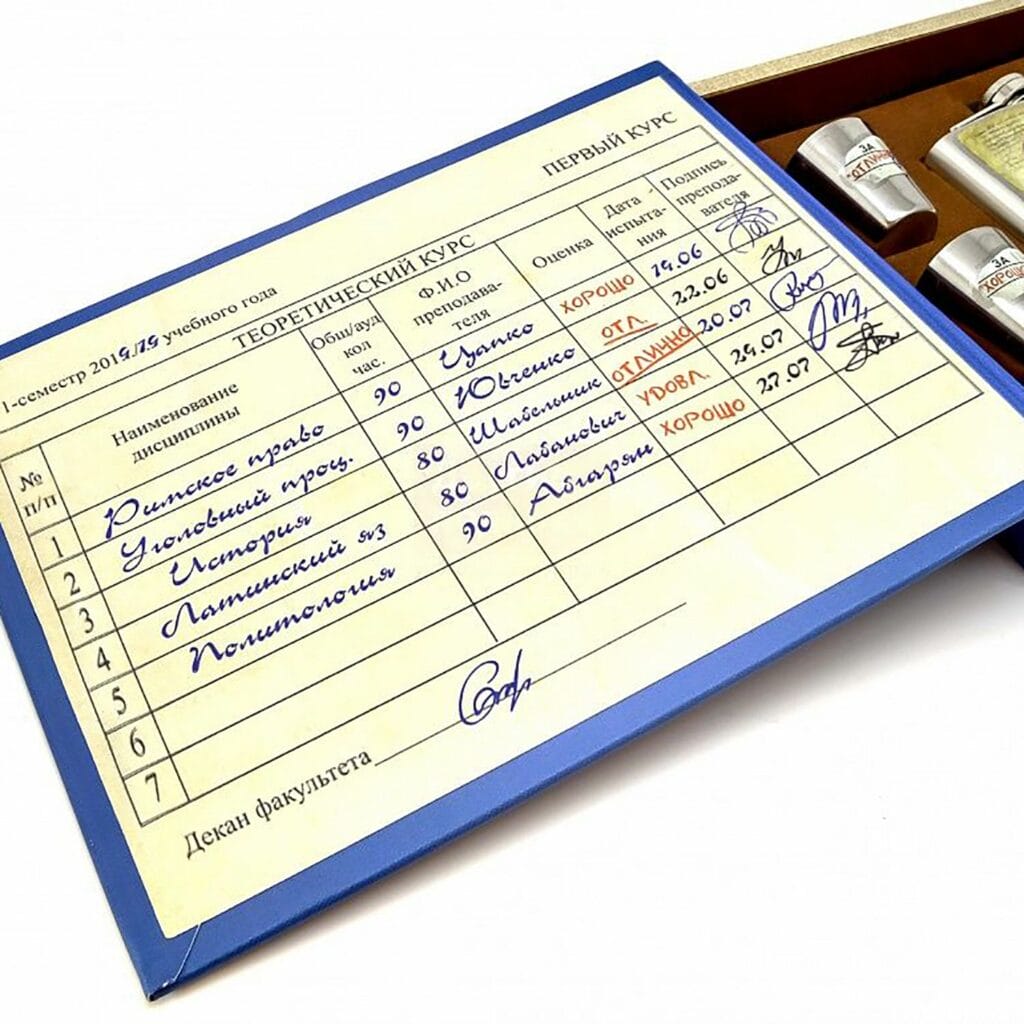 ПЕРВЫЙ КУРС
1-семестр 2019/19 учебного года
ТЕОРЕТИЧЕСКИЙ КУРС
№ п/п Наименование дисциплины Общ/ауд кол час. Ф.И.О преподава-теля Оценка Дата испыта-ния Подпись препода-вателя
1 Римское право 90 Цапко ХОРОШО 19.06
2 Уголовный проц. 90 Юьченко ОТЛ. 22.06
3 История 80 Шабельник ОТЛИЧНО 20.07
4 Латинский яз 80 Лабанович УДОВЛ. 24.07
5 Политология 90 Абгарян ХОРОШО 27.07
6
7
Декан факультета
ЗА
ОТЛИЧНО
ЗА
ХОРОШО